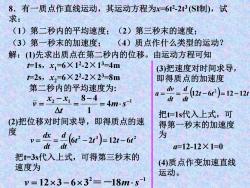 8．有一质点作直线运动，其运动方程为x=6t²-2t³(SI制)，试求：
（1）第二秒内的平均速度；（2）第三秒末的速度；
（3）第一秒末的加速度；（4）质点作什么类型的运动？
解：(1)先求出质点在第二秒内的位移。由运动方程可知
t=1s，x₁=6×1²-2×1³=4m
t=2s，x₂=6×2²-2×2³=8m
第二秒内的平均速度为：
v̄ = (x₂ - x₁)/Δt = (8-4)/1 = 4m·s⁻¹
(2)把位移对时间求导，即得质点的速度
v = dx/dt = d/dt (6t² - 2t³) = 12t - 6t²
把t=3s代入上式，可得第三秒末的速度为
v = 12×3-6×3² = -18m·s⁻¹
(3)把速度对时间求导，即得质点的加速度
a = dv/dt = d/dt (12t - 6t²) = 12 - 12t
把t=1s代入上式，可得第一秒末的加速度为
a=12-12×1=0
(4)质点作变加速直线运动。